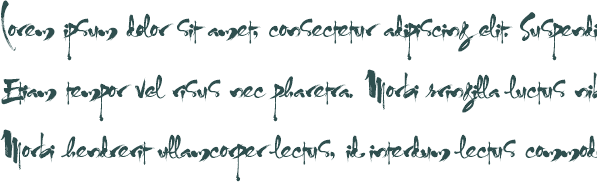 Lorem ipsum dolor sit amet, consectetur adipiscing elit. Suspendi
Etiam tempor vel risus nec pharetra. Morbi fringilla luctus nib
Morbi hendrerit ullamcorper lectus, id interdum lectus commod